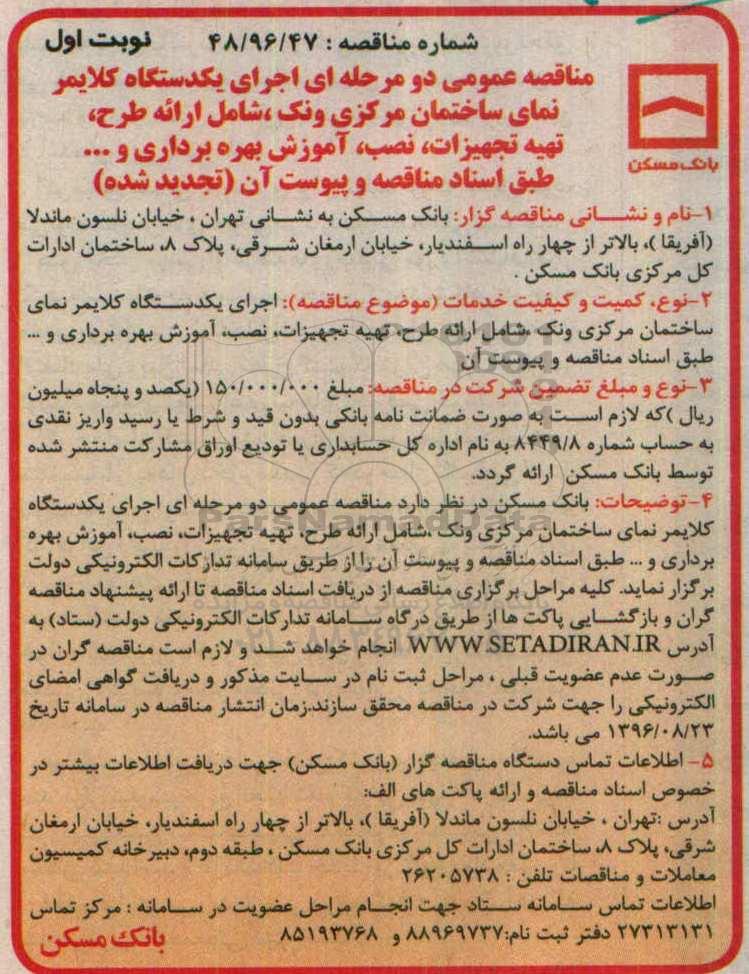 شماره مناقصه : ۴۸/۹۶/۴۷
نوبت اول
مناقصه عمومی دو مرحله ای اجرای یکدستگاه کلایمر
نمای ساختمان مرکزی ونک ،شامل ارائه طرح،
تهیه تجهیزات، نصب، آموزش بهره برداری و ...
طبق اسناد مناقصه و پیوست آن (تجدید شده)
بانک مسکن
۱-نام و نشـــانی مناقصه گزار: بانک مسـکن به نشـانی تهران ، خیابان نلسون ماندلا
(آفریقا )، بالاتر از چهار راه اسـفندیار، خیابان ارمغان شـرقی، پلاک ۸، ساختمان ادارات
کل مرکزی بانک مسکن .
۲-نوع، کمیت و کیفیت خدمات (موضوع مناقصه): اجرای یکدسـتگاه کلایمر نمای
ساختمان مرکزی ونک ،شامل ارائه طرح، تهیه تجهیزات، نصب، آموزش بهره برداری و ...
طبق اسناد مناقصه و پیوست آن
۳-نوع و مبلغ تضمین شرکت در مناقصه: مبلغ ۱۵۰/۰۰۰/۰۰۰ (یکصد و پنجاه میلیون
ریال )که لازم اسـت به صورت ضمانت نامه بانکی بدون قید و شرط یا رسید واریز نقدی
به حساب شماره ۸۴۴۹/۸ به نام اداره کل حسابداری یا تودیع اوراق مشارکت منتشر شده
توسط بانک مسکن ارائه گردد.
۴-توضیحات: بانک مسکن در نظر دارد مناقصه عمومی دو مرحله ای اجرای یکدستگاه
کلایمر نمای ساختمان مرکزی ونک ،شامل ارائه طرح، تهیه تجهیزات، نصب، آموزش بهره
برداری و ... طبق اسناد مناقصه و پیوست آن را از طریق سامانه تدارکات الکترونیکی دولت
برگزار نماید. کلیه مراحل برگزاری مناقصه از دریافت اسناد مناقصه تا ارائه پیشنهاد مناقصه
گران و بازگشـایی پاکت ها از طریق درگاه سـامانه تدارکات الکترونیکی دولت (ستاد) به
آدرس WWW.SETADIRAN.IR انجام خواهد شـد و لازم است مناقصه گران در
صـورت عدم عضویت قبلی ، مراحل ثبت نام در سـایت مذکور و دریافت گواهی امضای
الکترونیکی را جهت شرکت در مناقصه محقق سازند.زمان انتشار مناقصه در سامانه تاریخ
۱۳۹۶/۰۸/۲۳ می باشد.
۵- اطلاعات تماس دستگاه مناقصه گزار (بانک مسکن) جهت دریافت اطلاعات بیشتر در
خصوص اسناد مناقصه و ارائه پاکت های الف:
آدرس :تهران ، خیابان نلسون ماندلا (آفریقا )، بالاتر از چهار راه اسفندیار، خیابان ارمغان
شرقی، پلاک ۸، ساختمان ادارات کل مرکزی بانک مسکن ، طبقه دوم، دبیرخانه کمیسیون
معاملات و مناقصات تلفن : ۲۶۲۰۵۷۳۸
اطلاعات تماس سـامانه سـتاد جهت انجـام مراحل عضویت در سـامانه : مرکز تماس
۲۷۳۱۳۱۳۱ دفتر ثبت نام:۸۸۹۶۹۷۳۷ و ۸۵۱۹۳۷۶۸
بانک مسکن
ParsNamadData